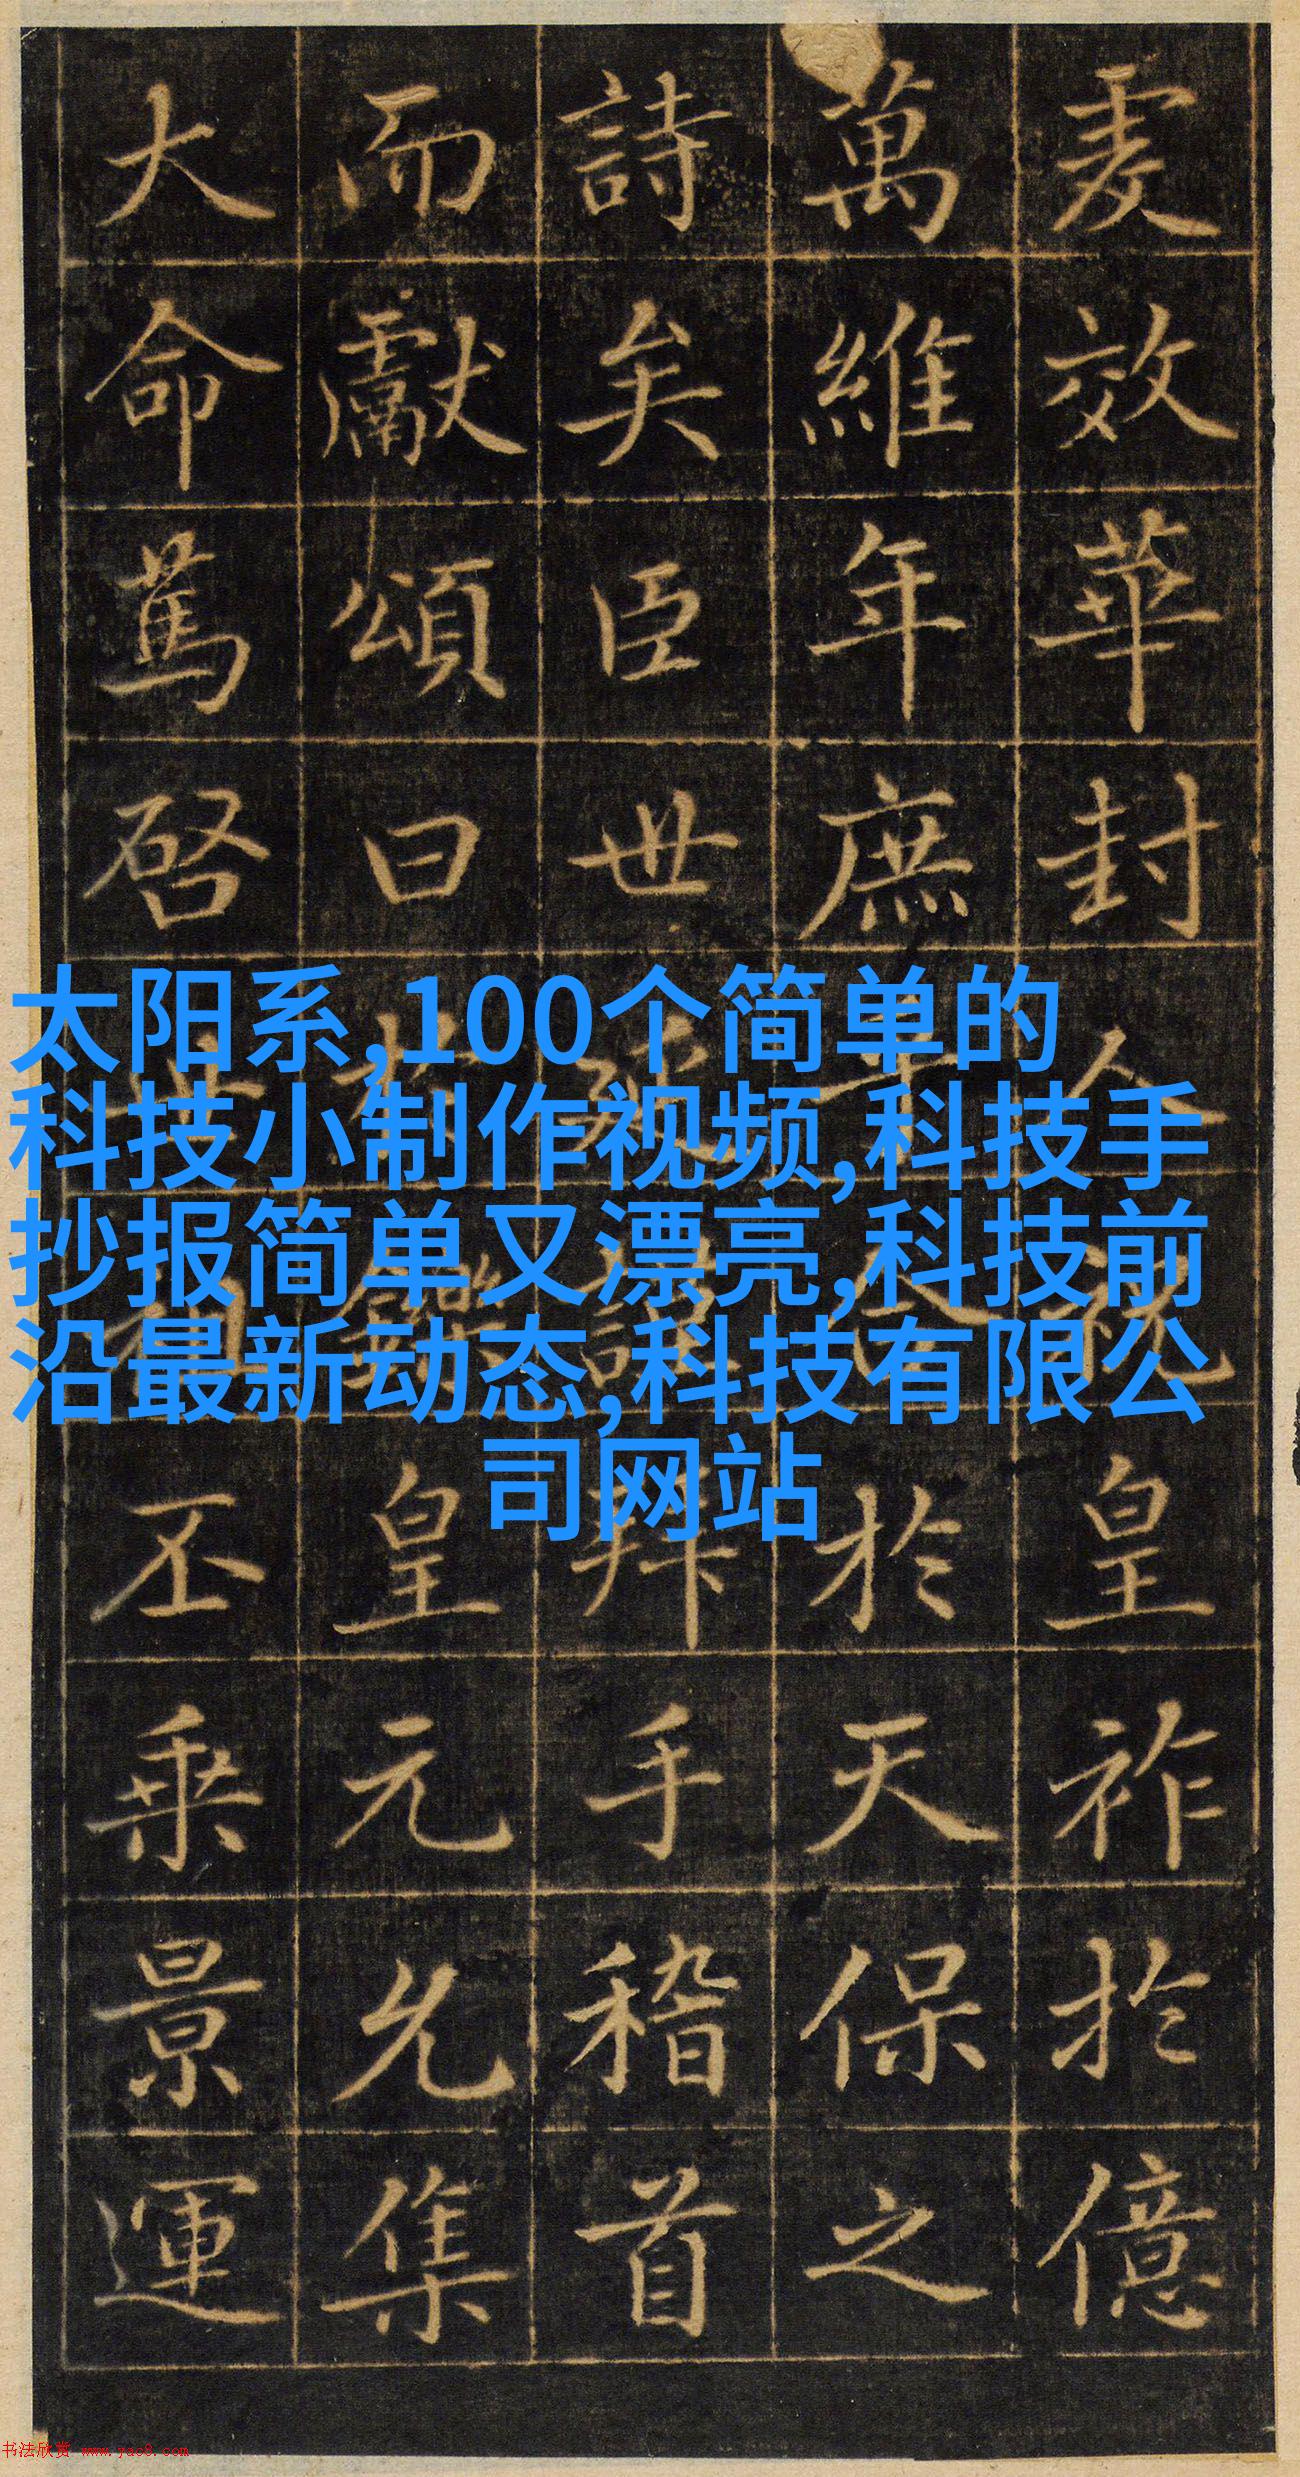 虔效華封人祝皇祚於億
萬維年庶於天保之
詩矣臣世謹拜手稽首
而獻頌曰於鑠皇元允集
大命篤啓世祖丕乘景運
太阳系,100个简单的
科技小制作视频,科技手
抄报简单又漂亮,科技前
沿最新动态,科技有限公
司网站
书法欣赏 www.yac8.com